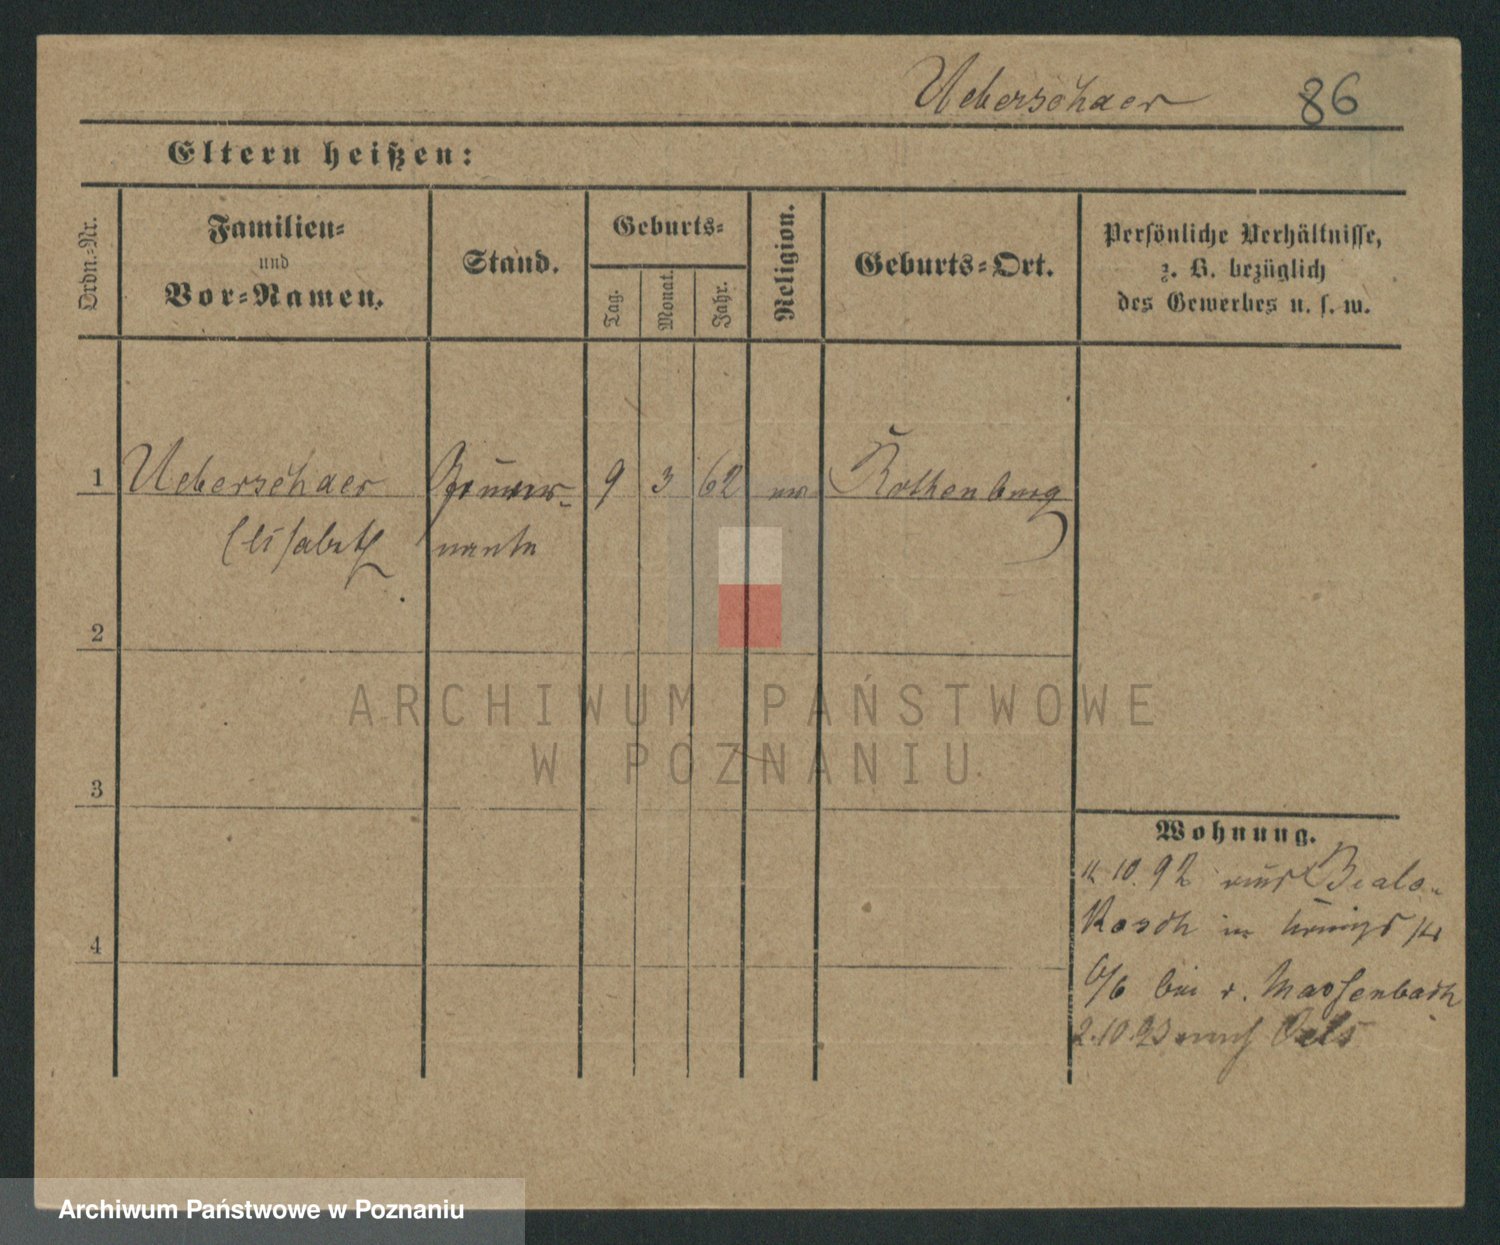 Ueberschaer 86
Eltern heißen:
Ordn.-Nr.
Familien-
und
Vor-Namen.
Stand.
Geburts-
Tag.
Monat.
Jahr.
Religion.
Geburts-Ort.
Persönliche Verhältnisse,
z. B. bezüglich
des Gewerbes u. s. w.
1 Ueberschaer Gouver- 9 3 62 ev Rothenburg
Elisabeth nante
2
3
4
Wohnung.
10. 92 aus Bialo-
kosch in Königsstr
6/6 bei v. Massenbach
2.10.93 nach Oels
ARCHIWUM PAŃSTWOWE
W POZNANIU
Archiwum Państwowe w Poznaniu